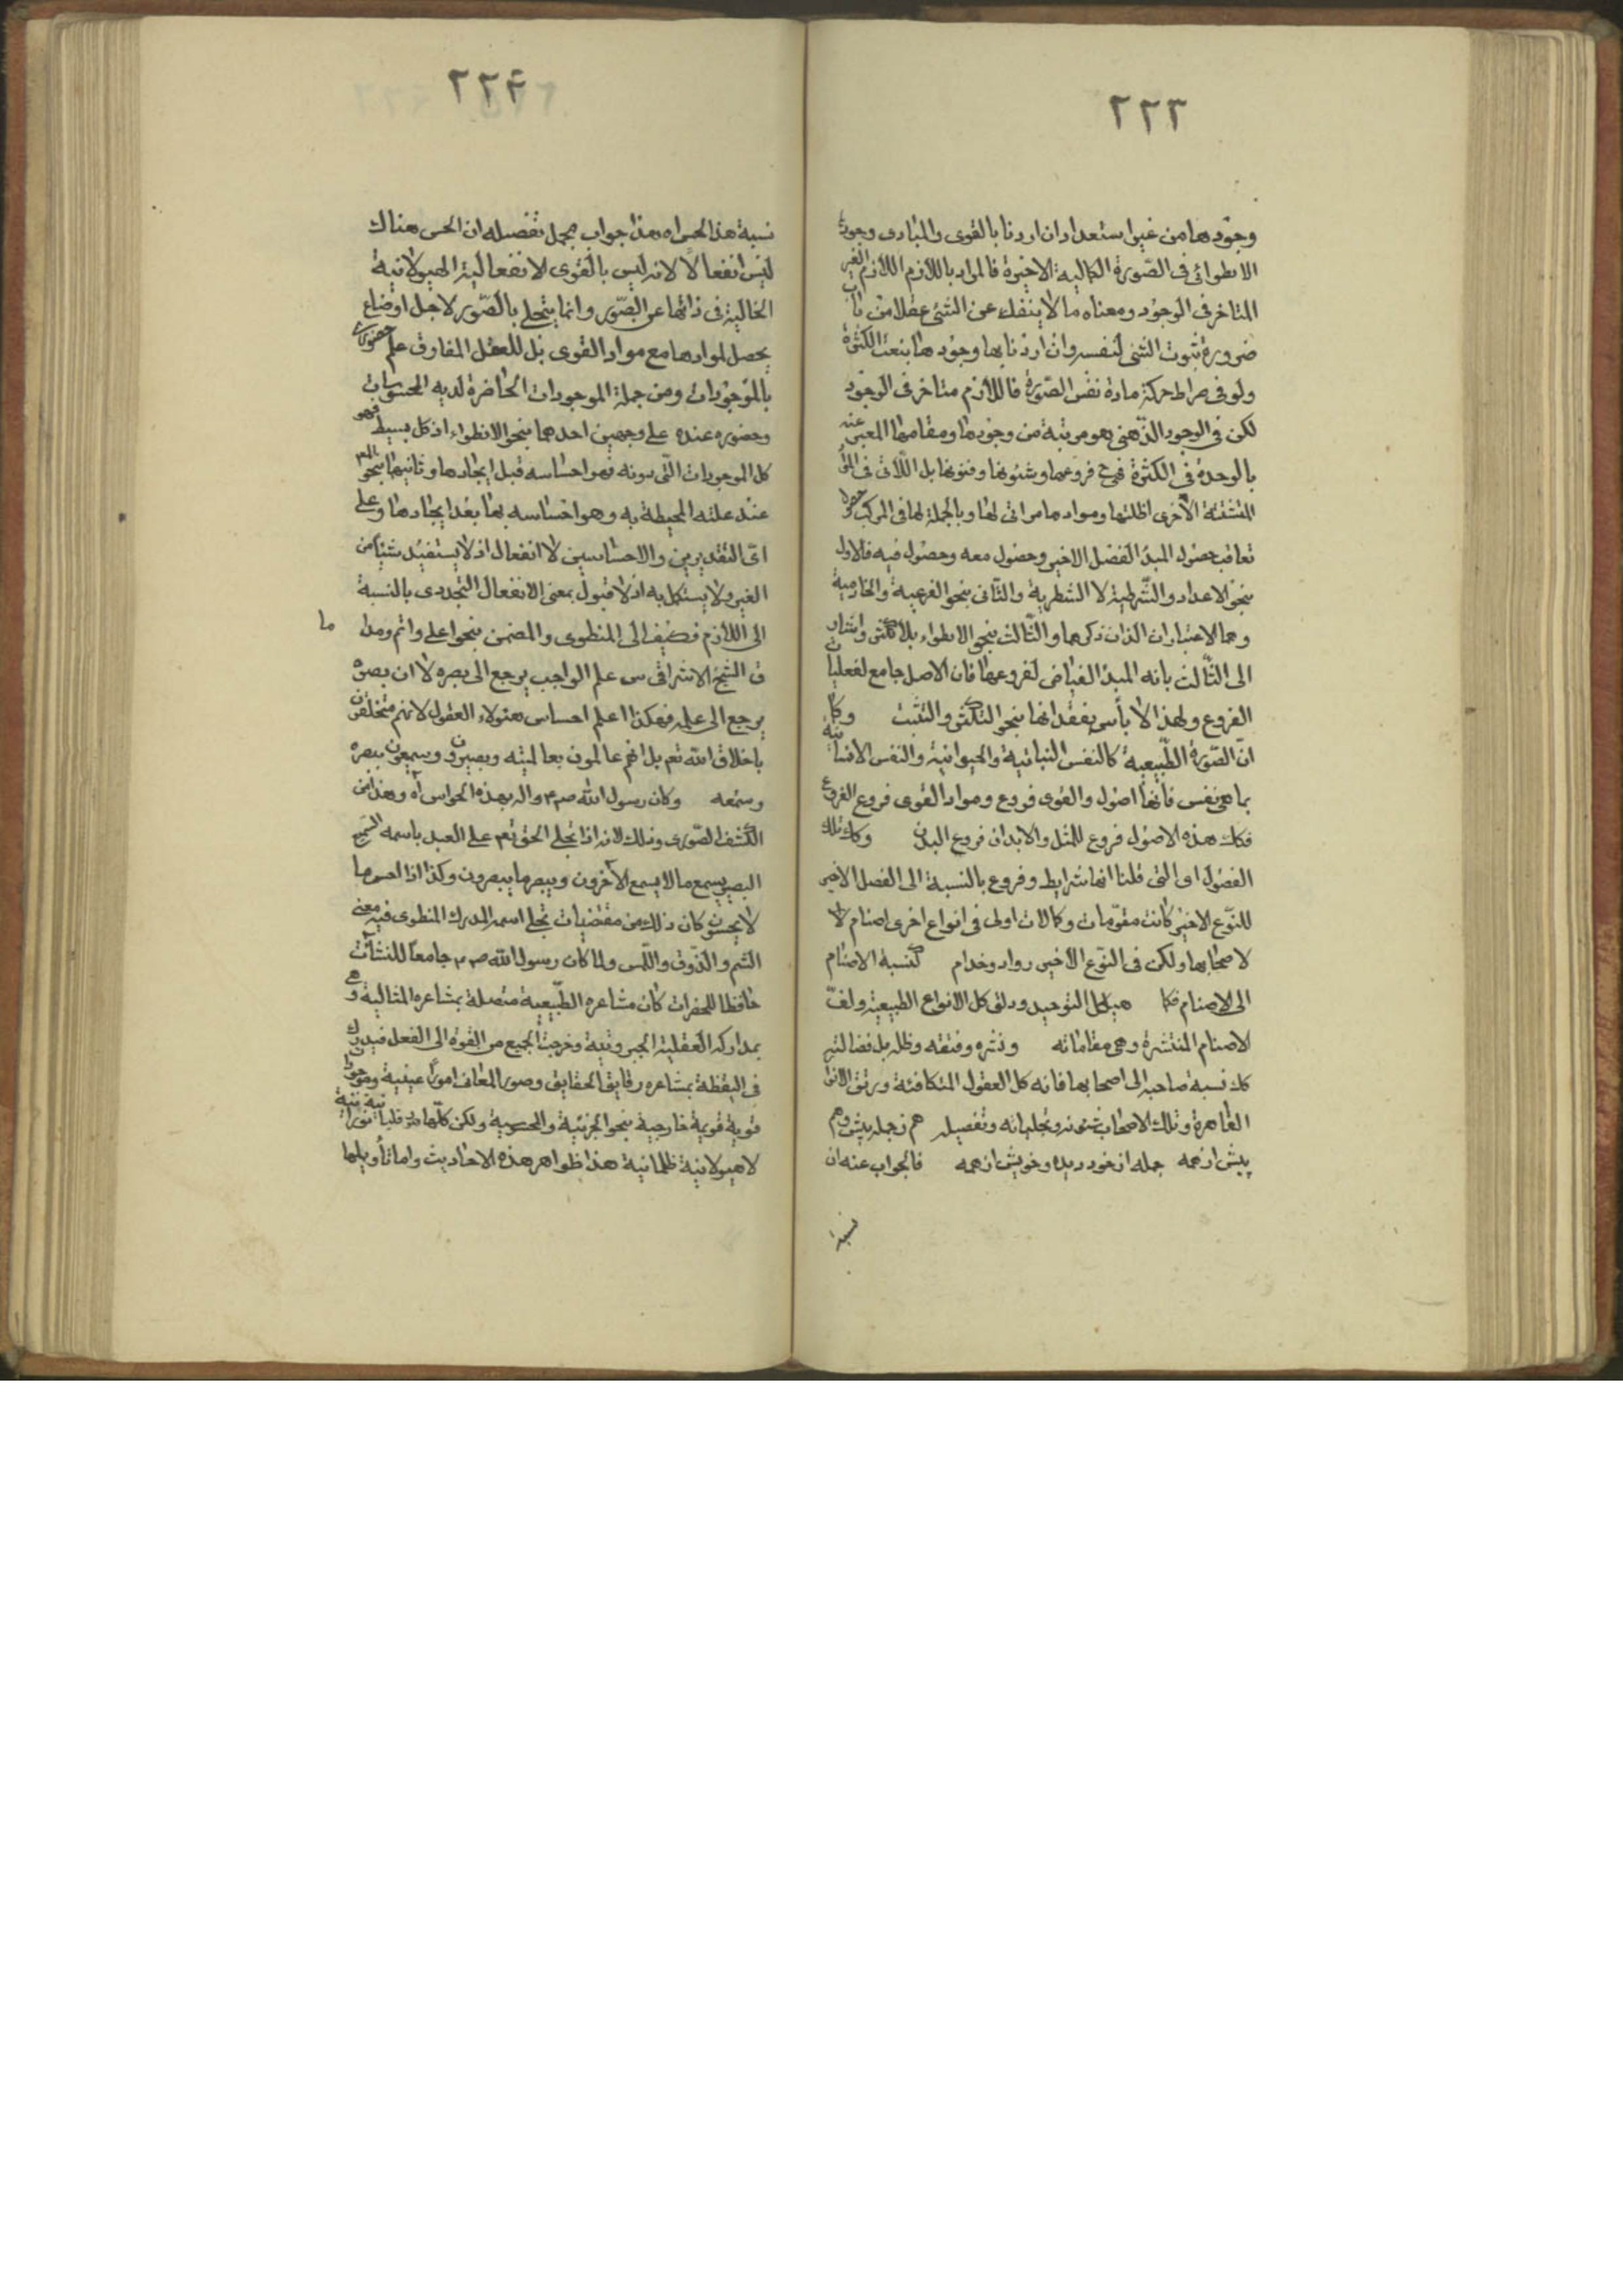 ٢٢٣
وجودها من غير استعداد ان اردنا بالقوى والمبادى وجودها
الانطوائى فى الصورة الكمالية الاخيرة فالمراد باللازم اللازم الغير
المتاخر فى الوجود ومعناه ما لا ينفك عن الشئ عقلا من باب
ضرورة ثبوت الشئ لنفسه وان اردنا بها وجودها بنعت الكثرة
ولو فى صراط حركة مادة نفس الصورة فاللازم متاخر فى الوجود
لكن فى الوجود الذهنى هو مرتبة من وجودها ومقامها المعبر عنه
بالوحدة فى الكثرة فهى فروعها وشئونها وفنونها بل اللاتى فى المواد
المتشتتة الاخرى اظلتها وموادها مرائى لها وبالجملة لها فى المركب
تعاقب حصول المبدء الفصل الاخير وحصول معه وحصول فيه فالاول
بنحو الاعداد والشرطية لا الشطرية والثانى بنحو الفرعية والخادمية
وهما الاعتباران اللذان ذكرهما والثالث بنحو الانطواء بلا تكثر واشار
الى الثالث بانه المبدء الفياض لفروعها فان الاصل جامع لفعليات
الفروع ولهذا لا بأس بفقدانها بنحو التكثر والتشتت وكما
ان الصورة الطبيعية كالنفس النباتية والحيوانية والنفس الانسانية
بما هى نفس فانها اصول والقوى فروع ومواد القوى فروع الفروع
فكك هذه الاصول فروع للمثل والابدان فروع البدن وكك تلك
الفصول اى التى قلنا انها شرايط وفروع بالنسبة الى الفصل الاخير
للنوع الاخير كانت مقومات وكمالات اولى فى انواع اخرى اصنام لا
لاصحابها ولكن فى النوع الاخير رواد وخدام كنسبة الاصنام
الى الاصنام فكما هيكل التوحيد ودلق كل الانواع الطبيعية ولف
لاصنام المنتشرة وهى مقاماته ونشره وفتقه وظله بل فضالته
كك نسبة صاحبه الى اصحابها فانه كل العقول المتكافئة ورتق الانوار
القاهرة وتلك الاصحاب شئونه وتجلياته وتفصيله هم ز جمله بيش وهم
پيش از همه جمله از خود ديده وخويش از همه فالجواب عنه ان
نسبة
٢٢٤
نسبة هذا الحس اه هذا جواب مجمل تفصيله ان الحس هناك
ليس انفعالا لانه ليس بالقوى الانفعالية الهيولانية
الخالية فى ذاتها عن الصور وانما يتحلى بالصور لاجل اوضاع
يحصل لموادها مع مواد القوى بل للعقل المفارق علم حضورى
بالموجودات ومن جملة الموجودات الحاضرة لديه المحسوسات
وحضوره عنده على وجهين احدهما بنحو الانطواء اذ كل بسيط فهو
كل الموجودات التى دونه فهو احساسه قبل ايجادها وثانيهما بنحو
عند علته المحيطة به وهو احساسه بها بعد ايجادها وعلى
اى التقديرين والاحساسين لا انفعال اذ لا يستفيد شيئا من
الغير ولا يستكمل به اذ لا قبول بمعنى الانفعال التجددى بالنسبة
الى اللازم فكيف الى المنطوى والمضمن بنحو اعلى واتم وما
ما
ق الشيخ الاشراقى س علم الواجب يرجع الى بصره لا ان بصره
يرجع الى علمه فهكذا اعلم احساس هؤلاء العقول لانهم متخلقون
باخلاق الله تعم بل انهم عالمون بعالميته وبصيرون وسميعون ببصره
وسمعه وكان رسول الله ص م واله بهذه الحواس اه وهذا من
الكشف الصورى وذلك لانه اذا تجلى الحق تعم على العبد باسمه السميع
البصير يسمع ما لا يسمع الآخرون ويبصر ما يبصرون وكذا اذا احس ما
لا يحسون كان ذلك من مقتضيات تجلى اسمه المدرك المنطوى فيه معنى
الشم والذوق واللمس ولما كان رسول الله ص م جامعا للنشآت
حافظا للحضرات كان مشاعره الطبيعية متصلة بمشاعره المثالية وهى
بمداركه العقلية الجبروتية وخرجت الجميع من القوة الى الفعل فيدرك
فى اليقظة بمشاعره رقايق الحقايق وصور المعانى امورا عينية وموجودات
قوية قويمة خارجية بنحو الجزئية والمحسوسية ولكن كلها نورانية
لا هيولانية ظلمانية هذا ظواهر هذه الاحاديث واما تأويلها